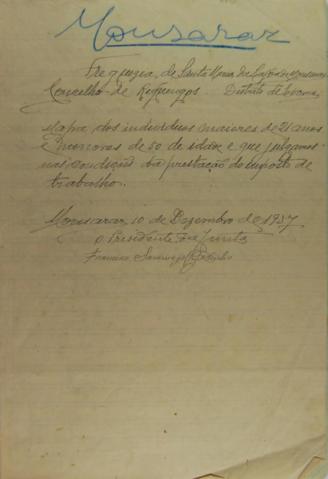 Mousaraz
Freguzia de Santa Maria da Lagoa de Mousaraz
Concelho de Reguengos. Distrito de Evora,
Mapa dos individuos maiores de 21 anos
e menores de 50 de idade e que julgamos
nas condições da prestação do imposto de
trabalho.
Mousaraz 10 de Dezembro de 1937
O Presidente da Junta
Francisco